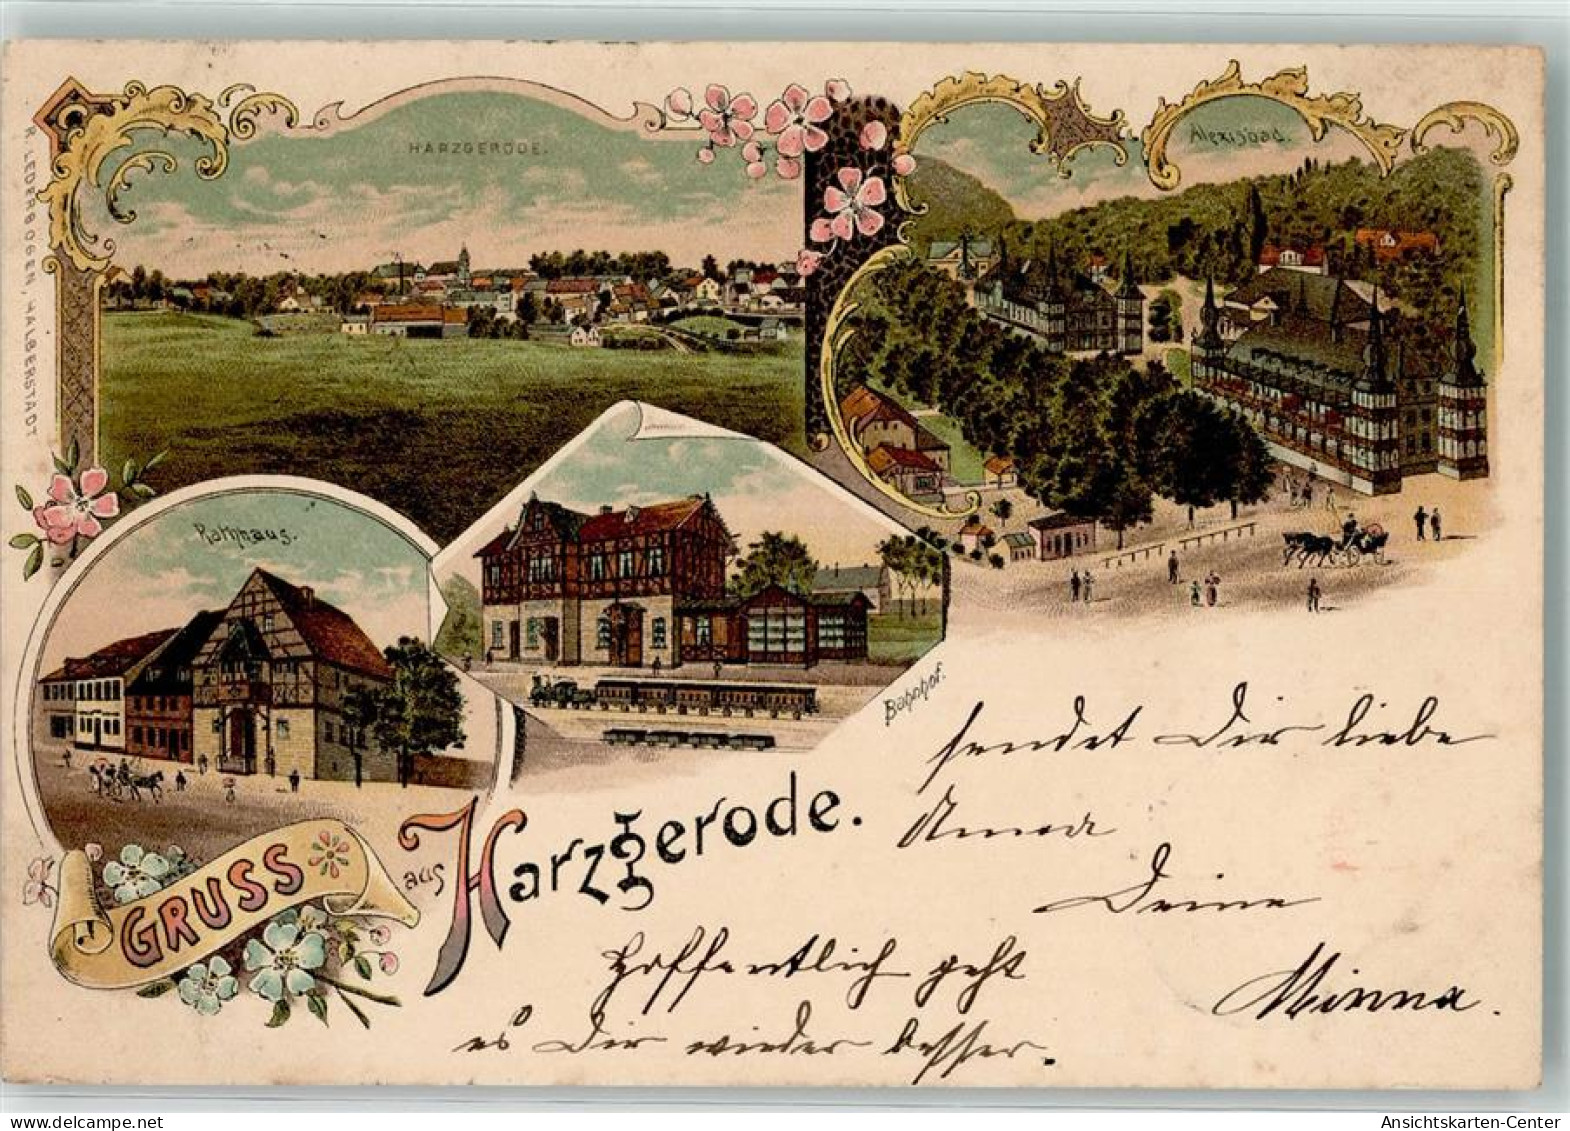 R. LEDERBOGEN, HALBERSTADT
HARZGERODE.
Alexisbad.
Rathhaus.
Bahnhof.
GRUSS
aus Harzgerode.
sendet Dir liebe
Deine
Minna.
Hoffentlich geht
es Dir wieder besser.
delcampe.net
Ansichtskarten-Center